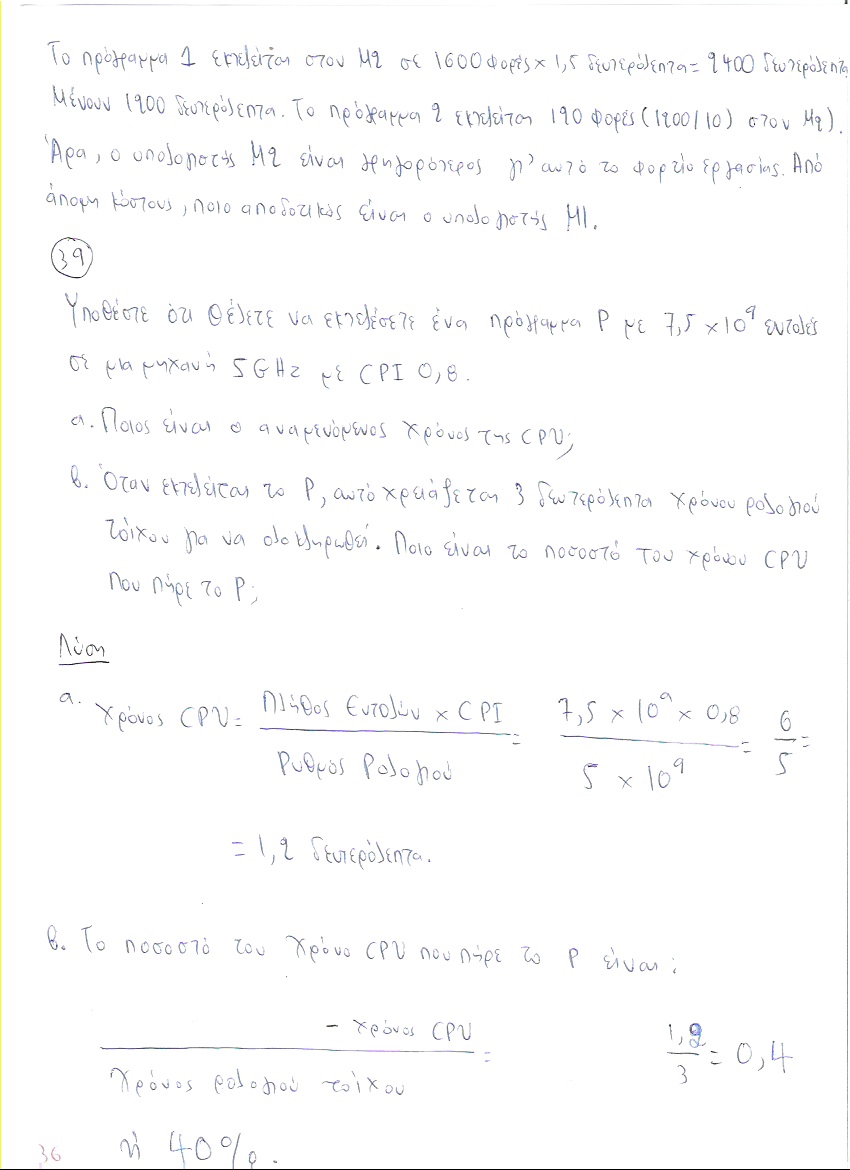 Το πρόγραμμα 1 εκτελείται στον M2 σε 1600 φορές × 1,5 δευτερόλεπτα = 2400 δευτερόλεπτα
Μένουν 1200 δευτερόλεπτα. Το πρόγραμμα 2 εκτελείται 120 φορές (1200/10) στον M2).
Άρα, ο υπολογιστής M2 είναι γρηγορότερος γι' αυτό το φορτίο εργασίας. Από
άποψη κόστους, ποιο αποδοτικός είναι ο υπολογιστής M1.
39
Υποθέστε ότι θέλετε να εκτελέσετε ένα πρόγραμμα P με 7,5 × 10⁹ εντολές
σε μια μηχανή 5GHz με CPI 0,8.
α. Ποιος είναι ο αναμενόμενος χρόνος της CPU;
β. Όταν εκτελείται το P, αυτό χρειάζεται 3 δευτερόλεπτα χρόνου ρολογιού
τοίχου για να ολοκληρωθεί. Ποιο είναι το ποσοστό του χρόνου CPU
που πήρε το P;
Λύση
α. Χρόνος CPU = Πλήθος Εντολών × CPI / Ρυθμός Ρολογιού = 7,5 × 10⁹ × 0,8 / 5 × 10⁹ = 6/5 =
= 1,2 δευτερόλεπτα.
β. Το ποσοστό του χρόνο CPU που πήρε το P είναι:
- χρόνος CPU / Χρόνος ρολογιού τοίχου = 1,2/3 = 0,4
ή 40%.
36